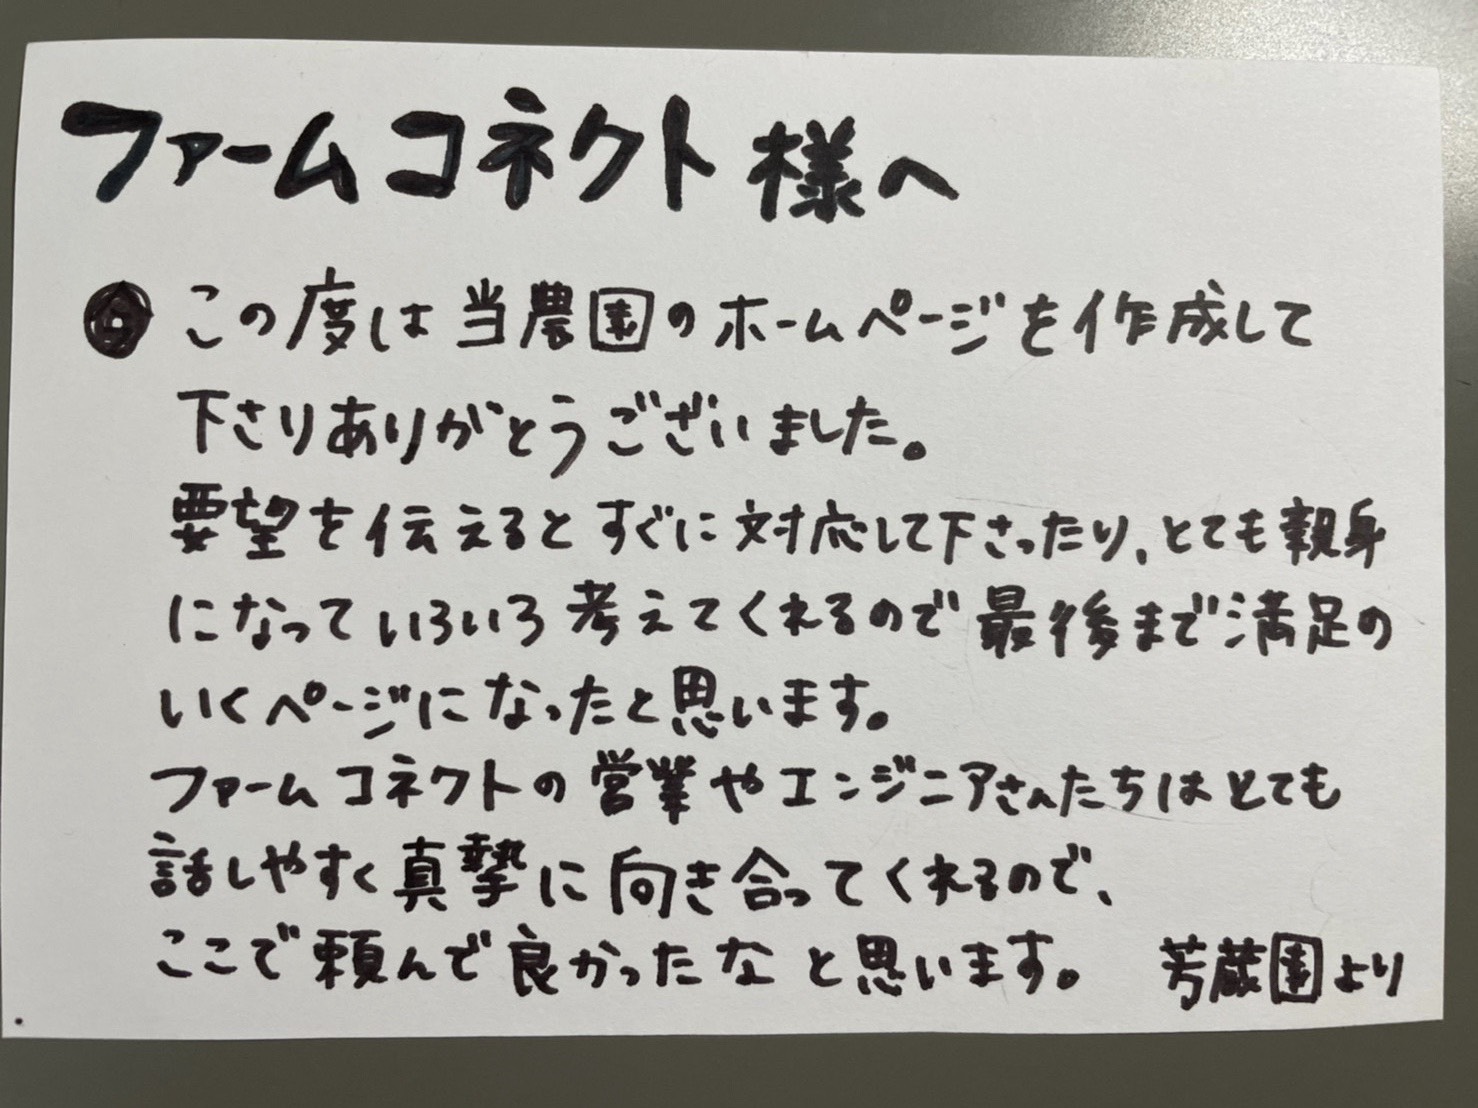 ファームコネクト様へ
この度は当農園のホームページを作成して
下さりありがとうございました。
要望を伝えるとすぐに対応して下さったり、とても親身
になっていろいろ考えてくれるので最後まで満足の
いくページになったと思います。
ファームコネクトの営業やエンジニアさんたちはとても
話しやすく真摯に向き合ってくれるので、
ここで頼んで良かったなと思います。 芳蔵園より